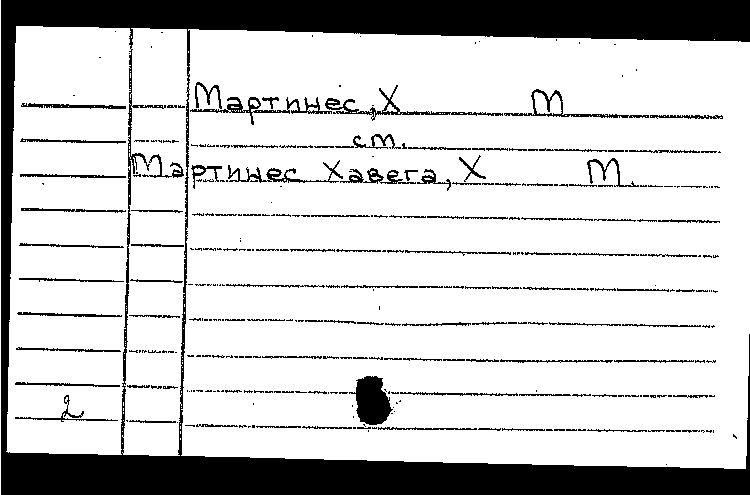 Мартинес, Х М
ст.
Мартинес Хавега, Х М.
2